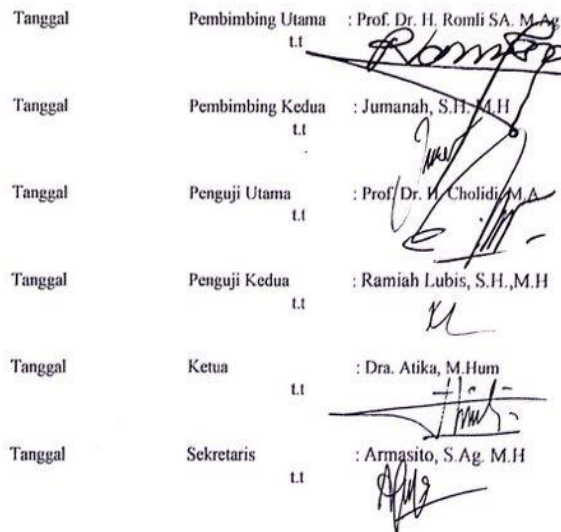 Tanggal Pembimbing Utama : Prof. Dr. H. Romli SA. M.Ag
t.t
Tanggal Pembimbing Kedua : Jumanah, S.H. M.H
t.t
Tanggal Penguji Utama : Prof. Dr. H. Cholidi, M.A
t.t
Tanggal Penguji Kedua : Ramiah Lubis, S.H.,M.H
t.t
Tanggal Ketua : Dra. Atika, M.Hum
t.t
Tanggal Sekretaris : Armasito, S.Ag. M.H
t.t